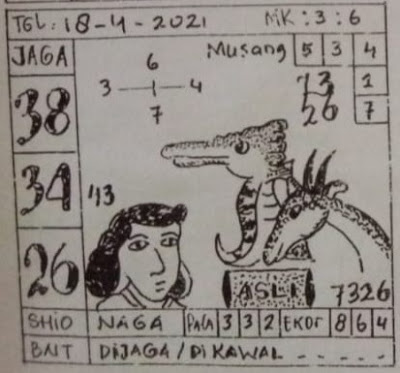 TGL: 18-4-2021 MK: 3: 6
JAGA Musang 5 3 4
6
3 4
7
73 1
26 7
38
34
43
26
ASLI 7326
SHIO NAGA PALA 3 3 2 EKOR 8 6 4
BAIT DIJAGA / DI KAWAL - - - - -